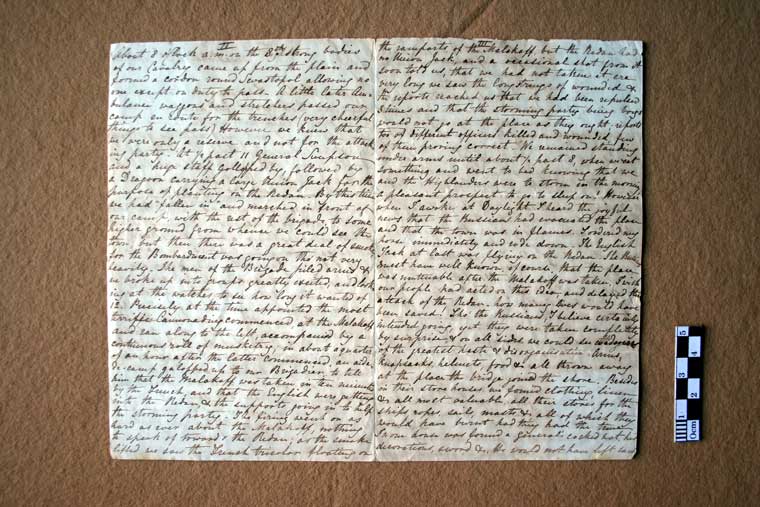 II
about 8 o'clock a.m. on the 8th strong bodies
of our Cavalry came up from the plain and
formed a cordon round Sevastopol allowing no
one except on duty to pass. A little later Am-
bulance waggons and stretchers passed our
camp en route for the trenches (very cheerful
things to see pass) However we knew that
we were only a reserve and not for the attack
ing party. At ½ past 11 General Simpson
and a huge staff gallopped by, followed by
a Dragoon carrying a large Union Jack for the
purpose of planting on the Redan. By this time
we had fallen in and marched in front of
our camp, with the rest of the brigade, to some
higher ground from whence we could see the
town but then there was a great deal of smoke
for the Bombardment was going on tho not very
heavily. The men of the Brigade piled arms &
we broke up into groups greatly excited, and look
ing at the watches to see how long it wanted of
12. Precisely at the time appointed the most
terrific Cannonading commenced at the Malakoff
and ran along to the left accompanied by a
continuous roll of musketry, in about a quarter
of an hour after the latter commenced, an aide
de-camp galopped up to our Brigadier to tell
him that the Malakoff was taken in ten minutes
by the French, and that the English were getting
into the Redan & the supports going in to help
the storming party. The firing went on as
hard as ever about the Malakoff, nothing
to speak of towards the Redan; as the smoke
lifted we saw the French tricolor floating on
III
the ramparts of the Malakoff, but the Redan had
no Union Jack, and a occasional shot from it
soon told us, that we had not taken it ere
very long we saw the long strings of wounded &
the reports reached us that we had been repulsed
3 times and that the storming party being boys
would not go at the place as they ought, reports
too of different officers killed and wounded, few
of them proving correct. We remained standing
under arms until about ½ past 8, when we eat
something and went to bed knowing that we
and the Highlanders were to storm in the morning
a pleasant prospect to go to sleep on! However
when I awoke at Daylight I heard the joyful
news that the Russians had evacuated the place
and that the town was in flames. I ordered my
horse immediately and rode down. The English
Jack at last was flying on the Redan. The
must have well known of course that the place
was untenable after the Malakoff was taken. I wish
our people had acted on this idea and delayed the
attack of the Redan. how many lives would have
been saved! Tho' the Russians I believe certainly
intended going, yet they were taken completely
by surprise & on all sides we could see
of the greatest haste & disorganisation. Arms,
knapsacks, helmets food & all thrown away
at the place the bridge joined the shore. Besides
in their store houses we found clothing
& all most valuable, all their stores for the
ships ropes, sails, masts & all of which they
would have burnt had they had the time
In one house was found a general's cocked hat his
decorations, sword & He would not have left such
0cm 1 2 3 4 5